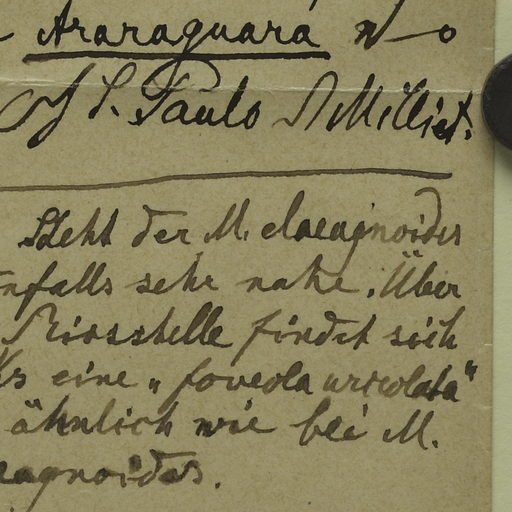 Araraquara
S. Paulo Milliet.
Steht der M. elaeagnoides
nfalls sehr nahe. Über
Rissstelle findet sich
eine „foveola urceolata“
ähnlich wie bei M.
eagnoides.